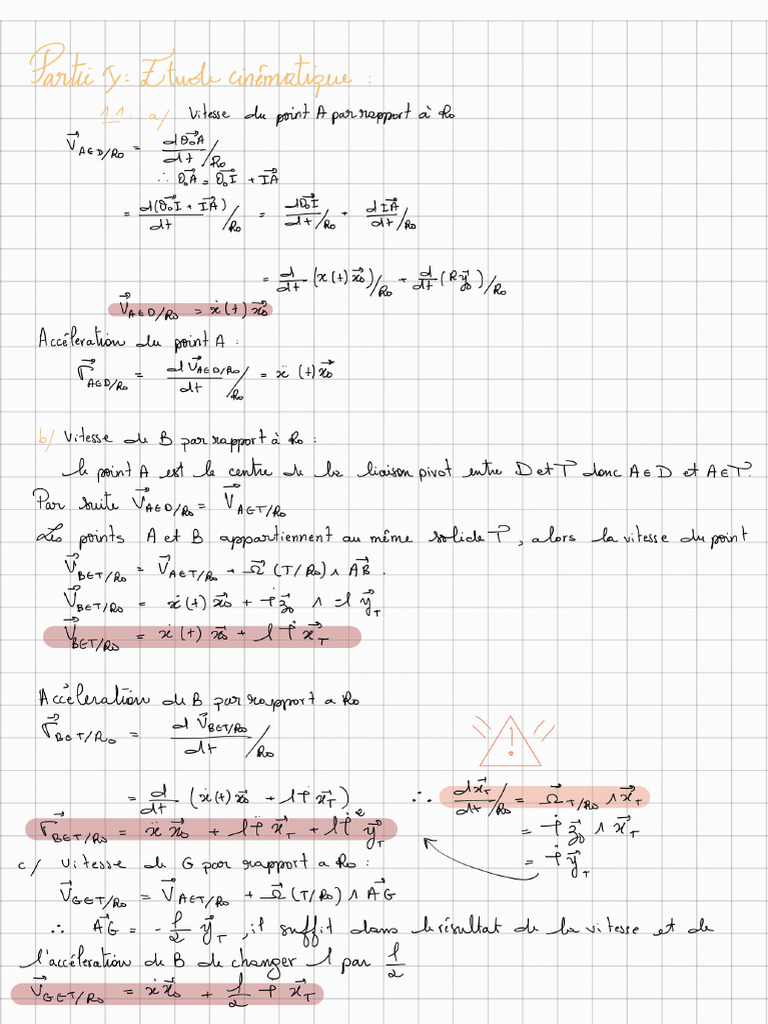 Partie I : Etude cinématique :
1.1. a/ Vitesse du point A par rapport à R₀
V⃗_{A∈D/R₀} = dO₀A⃗/dt /R₀
∴ O₀A⃗ = O₀I⃗ + IA⃗
= d(O₀I⃗ + IA⃗)/dt /R₀ = dO₀I⃗/dt /R₀ + dIA⃗/dt /R₀
= d/dt (x(t)x⃗₀)/R₀ + d/dt (R y⃗₀)/R₀
V⃗_{A∈D/R₀} = ẋ(t) x⃗₀
Accéleration du point A :
Γ⃗_{A∈D/R₀} = dV⃗_{A∈D/R₀}/dt /R₀ = ẍ (t) x⃗₀
b/ Vitesse de B par rapport à R₀ :
le point A est le centre de la liaison pivot entre D et T donc A∈D et A∈T.
Par suite V⃗_{A∈D/R₀} = V⃗_{A∈T/R₀}
Les points A et B appartiennent au même solide T, alors la vitesse du point
V⃗_{B∈T/R₀} = V⃗_{A∈T/R₀} + Ω⃗ (T/R₀) ∧ AB⃗.
V⃗_{B∈T/R₀} = ẋ(t) x⃗₀ + φ̇ z⃗₀ ∧ -l y⃗_T
V⃗_{B∈T/R₀} = ẋ(t) x⃗₀ + l φ̇ x⃗_T
Accéleration de B par rapport a R₀
Γ⃗_{B∈T/R₀} = d V⃗_{B∈T/R₀}/dt /R₀
= d/dt (ẋ(t) x⃗₀ + l φ̇ x⃗_T) ∴ dx⃗_T/dt /R₀ = Ω⃗_{T/R₀} ∧ x⃗_T
!
Γ⃗_{B∈T/R₀} = ẍ x⃗₀ + l φ̈ x⃗_T + l φ̇² y⃗_T = φ̇ z⃗₀ ∧ x⃗_T
= φ̇ y⃗_T
c/ Vitesse de G par rapport a R₀ :
V⃗_{G∈T/R₀} = V⃗_{A∈T/R₀} + Ω⃗ (T/R₀) ∧ AG⃗
∴ AG⃗ = - l/2 y⃗_T, il suffit dans le résultat de la vitesse et de
l'accéleration de B de changer l par l/2
V⃗_{G∈T/R₀} = ẋ x⃗₀ + l/2 φ̇ x⃗_T